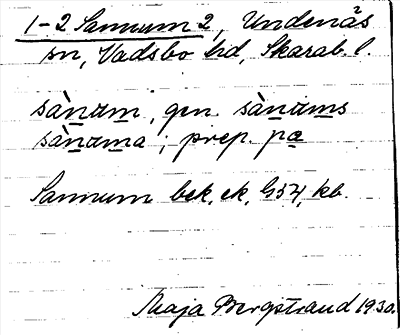 1-2 Sannum 2, Undenäs
sn, Vadsbo hd, Skarab. l.
sànum, gen. sànums
sànuma; prep. pa
Sannum bek, ek, G57, kb.
Maja Bergstrand 1930.